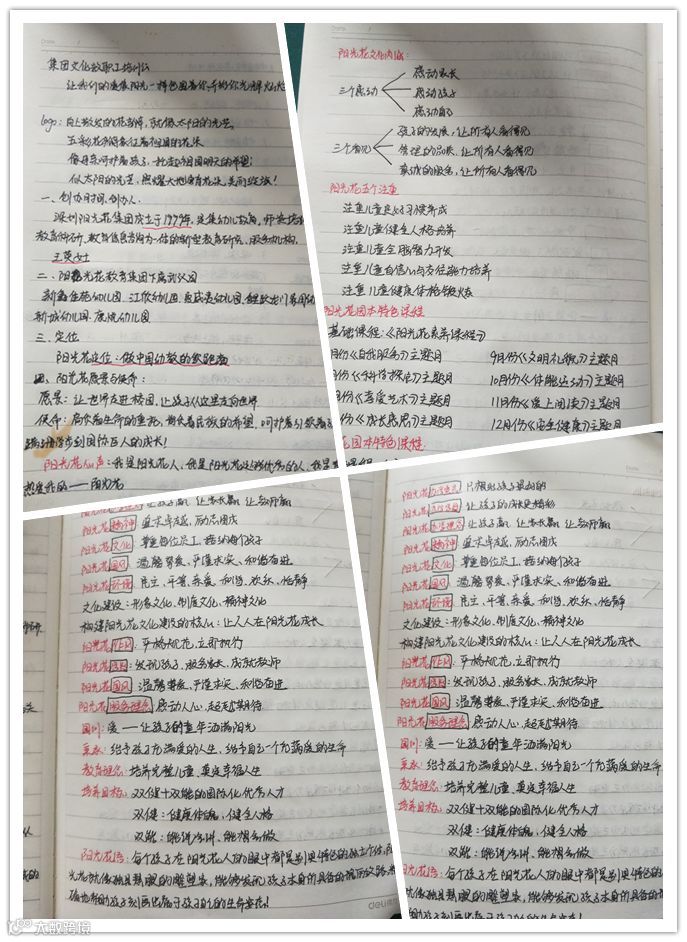 集团文化教职工培训会
让我们的
logo：向上散发的花瓣，就像太阳的光芒，
五彩花瓣象征着祖国的花朵
像母亲呵护着孩子，托起祖国明天的希望；
似太阳的光芒，照耀大地
一、创办时间、创办人
深圳阳光花集团成立于1979年，是集幼儿教育、师资培
教育科研、教育信息咨询为一体的新型教育研究、服务机构。
王英女士
二、阳光花教育集团下属幼儿园
新鑫佳苑幼儿园、江欣幼儿园
新城幼儿园、康苑幼儿园
三、定位
阳光花定位：做中国幼教的
四、阳光花愿景与使命：
愿景：让世界走进校园，让孩子从这里走向世界
使命：肩负着生命的重托，担负着民族的希望，呵护着引领着
步到国际巨人的成长！
阳光花心声：我是阳光花人，我是阳光花
热爱我的——阳光花
阳光花文化内涵：
三个感动
感动家长
感动孩子
感动自己
三个看见
孩子的发展，让所有人看得见
管理的品质，让所有人看得见
真诚的服务，让所有人看得见
阳光花五个注重
注重儿童良好习惯养成
注重儿童健全人格培养
注重儿童全脑潜力开发
注重儿童自信心与责任能力培养
注重儿童健康体格锻炼
阳光花园本特色课程
基础课程：《阳光花素养课程》
月份《自我服务》主题月 9月份《文明礼貌》主题月
月份《科学探究》主题月 10月份《体能运动》主题月
月份《喜爱艺术》主题月 11月份《爱上阅读》主题月
月份《成长感恩》主题月 12月份《安全健康》主题月
花园本特色课程
让孩子高兴，让家长赢，让教师赢
阳光花精神 追求卓越，励志图成
阳光花文化：尊重每位员工，接纳每个孩子
阳光花园风：温馨尊爱、严谨求实、和谐奋进
阳光花环境：民主、平等、亲爱、和谐、欢乐、恬静
文化建设：形象文化、制度文化、精神文化
构建阳光花文化建设的核心：让人人在阳光花成长
阳光花作风：严格规范，立即执行
阳光花：发现孩子，服务家长，成就教师
阳光花园风：温馨尊爱、严谨求实、和谐奋进
阳光花服务理念：感动人心，超越期待
园训：爱——让孩子的童年洒满阳光
追求：给予孩子充满爱的人生，给予自己一个充满爱的生命
教育理念：培养完整儿童，奠定幸福人生
培养目标：双健+双能的国际化优秀人才
双健：健康体魄，健全人格
双能：能说会讲、能想会做
阳光花语：每个孩子在阳光花人的眼中都是别具特色的独立个体，阳
光花就像独具慧眼的雕塑家，能够发现孩子本身所具备的
助孩子刻画出属于孩子自己的生命姿态！
阳光花 只为孩子
阳光花 让孩子的成长更精彩
阳光花 让孩子高兴，让家长赢，让教师赢
阳光花精神 追求卓越，励志图成
阳光花文化 尊重每位员工，接纳每个孩子
阳光花园风：温馨尊爱、严谨求实、和谐奋进
阳光花环境：民主、平等、亲爱、和谐、欢乐、恬静
文化建设：形象文化、制度文化、精神文化
构建阳光花文化建设的核心：让人人在阳光花成长
阳光花作风：严格规范，立即执行
阳光花：发现孩子，服务家长，成就教师
阳光花园风：温馨尊爱、严谨求实、和谐奋进
阳光花服务理念：感动人心，超越期待
园训：爱——让孩子的童年洒满阳光
追求：给予孩子充满爱的人生，给予自己一个充满爱的生命
教育理念：培养完整儿童，奠定幸福人生
培养目标：双健+双能的国际化优秀人才
双健：健康体魄，健全人格
双能：能说会讲、能想会做
阳光花语：每个孩子在阳光花人的眼中都是别具特色的
就像独具慧眼的雕塑家，能够发现孩子本身所具备的
助孩子刻画出属于孩子自己的生命姿态！
deli
大数跨境